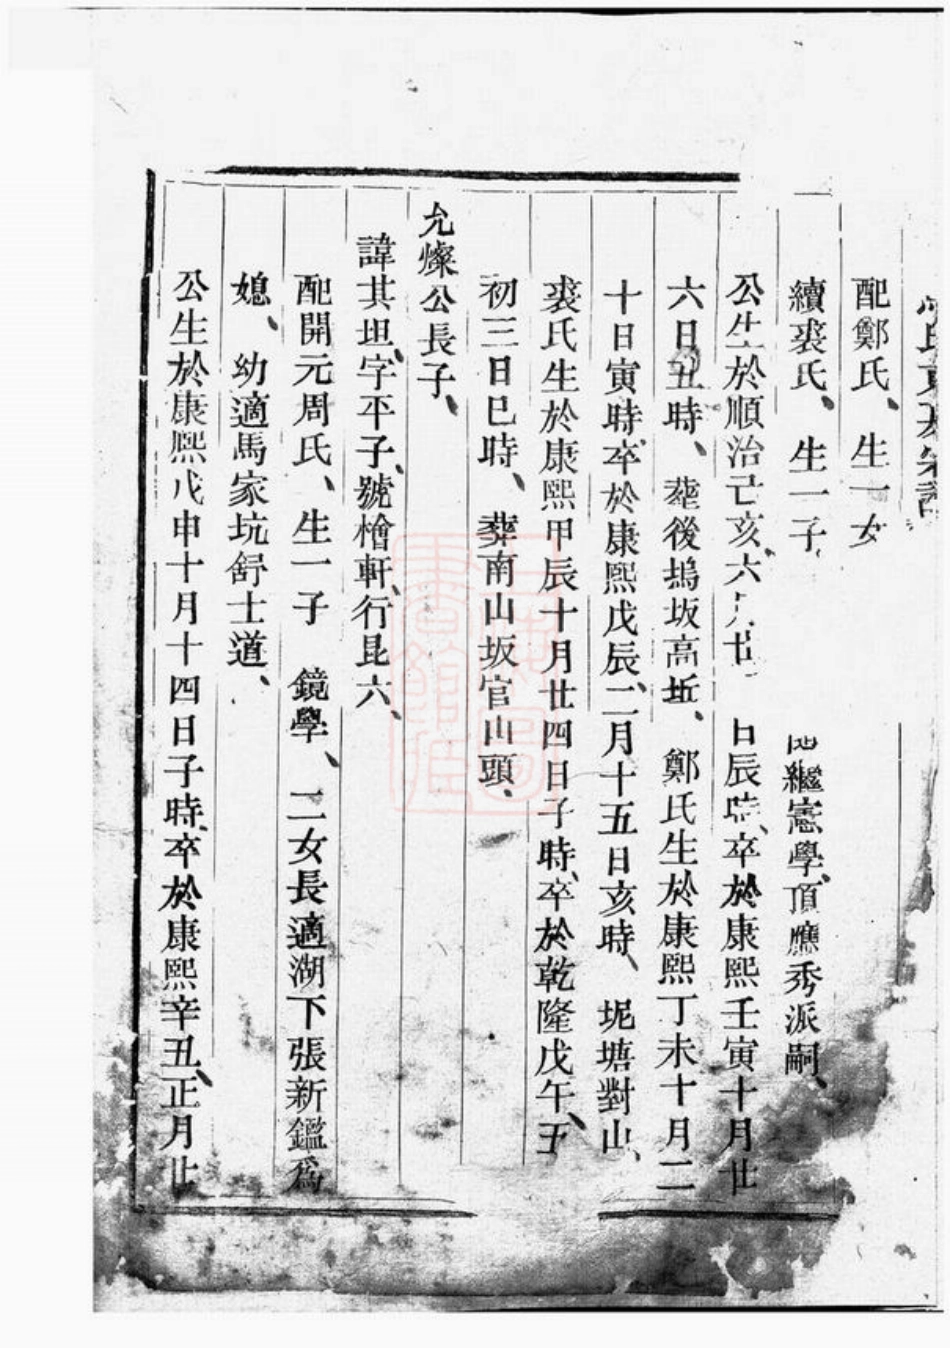 氏東
配鄭氏、生一女
續裘氏、生一子 繼憲學、頂應秀派嗣、
公生於順治己亥、六月廿 日辰時、卒於康熙壬寅十月廿
六日丑時、葬後塢坂高坵、鄭氏生於康熙丁未十月二
十日寅時、卒於康熙戊辰、二月十五日亥時、坭塘對山、
裘氏生於康熙甲辰十月廿四日子時、卒於乾隆戊午、五
初三日巳時、葬南山坂官山頭、
允燦公長子、
諱其坦、字平子、號檜軒、行昆六、
配開元周氏、生一子 鏡學、二女長適湖下張新鑑爲
媳、幼適馬家坑舒士道、
公生於康熙戊申十月十四日子時、卒於康熙辛丑、正月廿